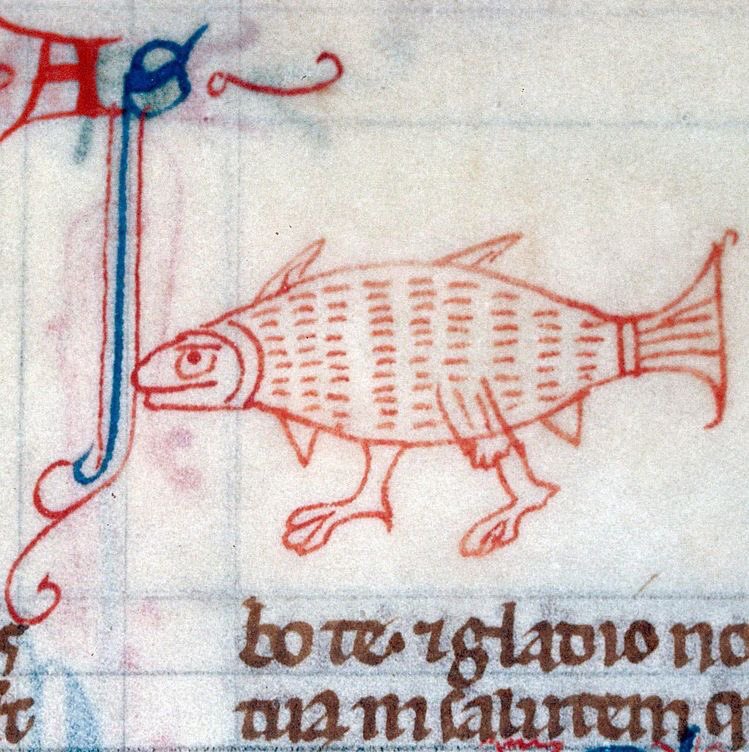 AS
bo te· ⁊ gladio no
tua in salutem q